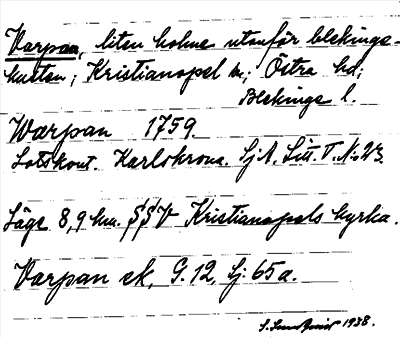 Varpan, liten holme utanför blekinge-
kusten; Kristianopel sn; Östra hd;
Blekinge l.
Warpan 1759
Lotskont. Karlskrona. Sj A, Litt. T. No 23.
Läge 8,9 km. SSV Kristianopels kyrka.
Varpan ek, G. 12, bj. 65 a.
1938.